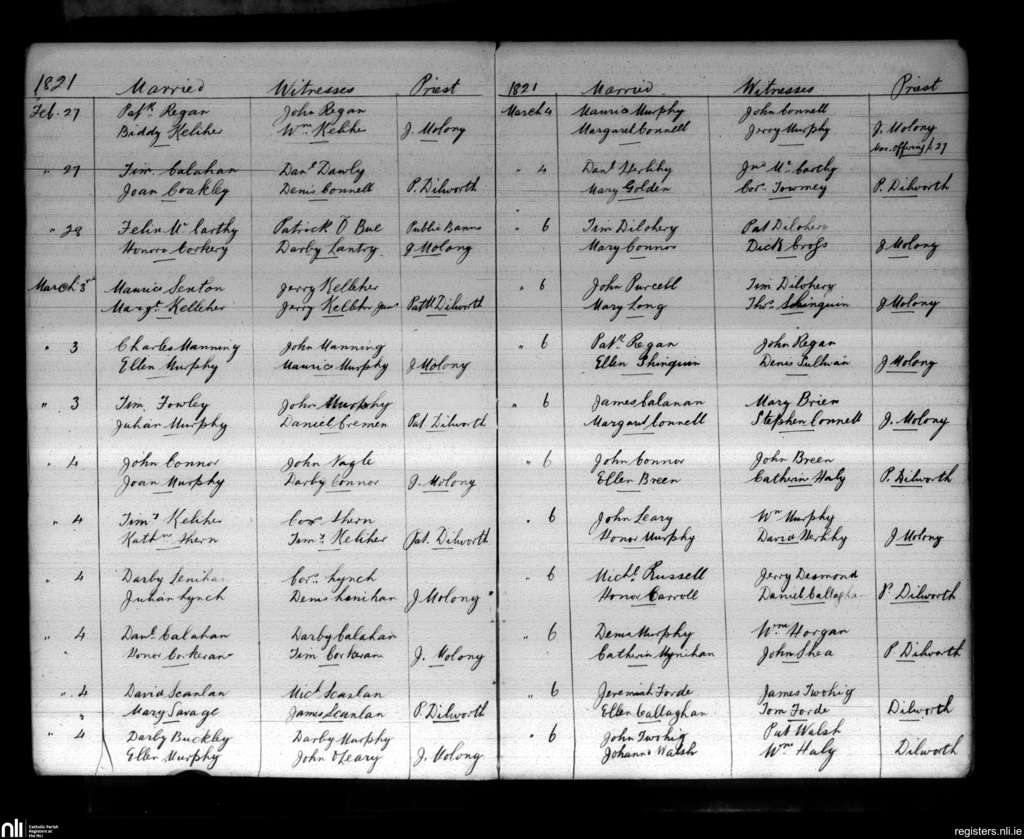 1821 Married Witnesses Priest
Feb. 27 Patk Regan John Regan
Biddy Keliher Wm Keliher J. Molony
" 27 Tim. Calahan Danl Dawly
Joan Coakley Denis Connell P. Dilworth
" 28 Felix Mc Carthy Patrick O Bue Public Banns
Honora Corkery Darby Lantry J Molony
March 3rd Maurice Senton Jerry Kelleher
Margt Kelleher Jerry Kelleher Junr Patk Dilworth
" 3 Charles Manning John Manning
Ellen Murphy Maurice Murphy J Molony
" 3 Tim. Fowley John Murphy
Julian Murphy Daniel Cremen Pat. Dilworth
" 4 John Connor John Nagle
Joan Murphy Darby Connor J. Molony
" 4 Timy Keliher Corn Shern
Kathne Shern Timy Keliher Pat. Dilworth
" 4 Darby Lenihan Corn Lynch
Julian Lynch Denis Lenihan J Molony
" 4 Danl Calahan Darby Calahan
Honor Corkeran Tim Corkeran J. Molony
" 4 David Scanlan Michl Scanlan
" Mary Savage James Scanlan P. Dilworth
" 4 Darby Buckley Darby Murphy
Ellen Murphy John O'Leary J. Molony
1821 Married Witnesses Priest
March 4 Maurice Murphy John Connell
Margaret Connell Jerry Murphy J. Molony
offering 27
" 4 Danl Herlihy Jno Mc Carthy
Mary Golden Cors Towmey P. Dilworth
" 6 Tim Dilohery Pat Dilohery
Mary Connor Dick Cross J Molony
" 6 John Purcell Tim Dilohery
Mary Long Thos Shinquin J Molony
" 6 Patk Regan John Regan
Ellen Shinquin Denis Sullivan J Molony
" 6 James Calanan Mary Brien
Margaret Connell Stephen Connell J. Molony
" 6 John Connor John Breen
Ellen Breen Catherin Haly P. Dilworth
" 6 John Leary Wm Murphy
Honor Murphy David Herlihy J Molony
" 6 Michl Russell Jerry Desmond
Honor Carroll Daniel Callaghan P. Dilworth
" 6 Denis Murphy Wm Horgan
Catherin Mynihan John Shea P Dilworth
" 6 Jeremiah Forde James Twohig
Ellen Callaghan Tom Forde Dilworth
" 6 John Twohig Pat Walsh
Johanna Walsh Wm Haly Dilworth
nli Catholic Parish Registers at the NLI
registers.nli.ie